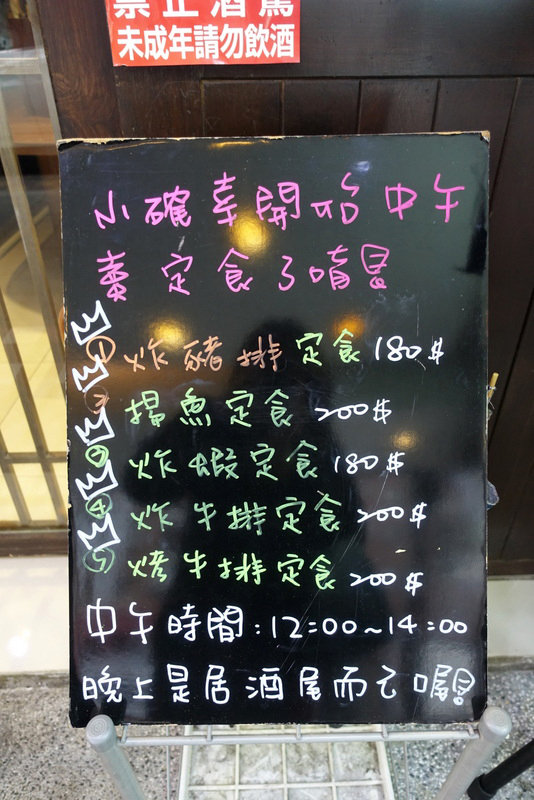 禁止酒駕
未成年請勿飲酒
小確幸開始中午
賣定食了唷
① 炸豬排定食 180$
② 揚魚定食 200$
③ 炸蝦定食 180$
④ 炸牛排定食 200$
⑤ 烤牛排定食 200$
中午時間:12:00~14:00
晚上是居酒屋而已喔